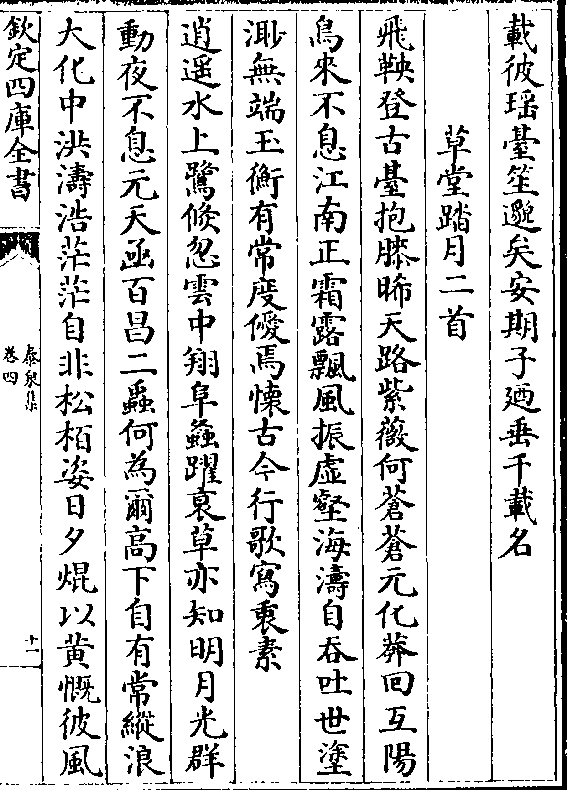 載彼瑶臺笙邈矣安期子廼垂千載名
草堂踏月二首
飛鞅登古臺抱膝晞天路紫薇何蒼蒼元化莽回互陽
鳥來不息江南正霜露飄風振虛壑海濤自吞吐世塗
渺無端玉衡有常度僾焉懐古今行歌寫衷素
逍遥水上鷺倐忽雲中翔阜螽躍衰草亦知明月光群
動夜不息元天函百昌二蟲何為爾高下自有常縱浪
大化中洪濤浩茫茫自非松栢姿日夕焜以黄慨彼風
欽定四庫全書
泰泉集
卷四
十一